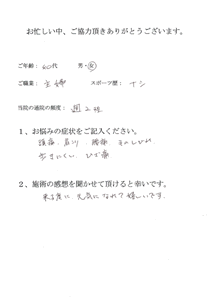 お忙しい中、ご協力頂きありがとうございます。
ご年齢：60代　男・女
ご職業：主婦　スポーツ歴：ナシ
当院の通院の頻度：週2程
１、お悩みの症状をご記入ください。
頭痛、肩こり、腰痛、手のしびれ
歩きにくい、ひざ痛
２、施術の感想を聞かせて頂けると幸いです。
来る度に元気になれて嬉しいです。